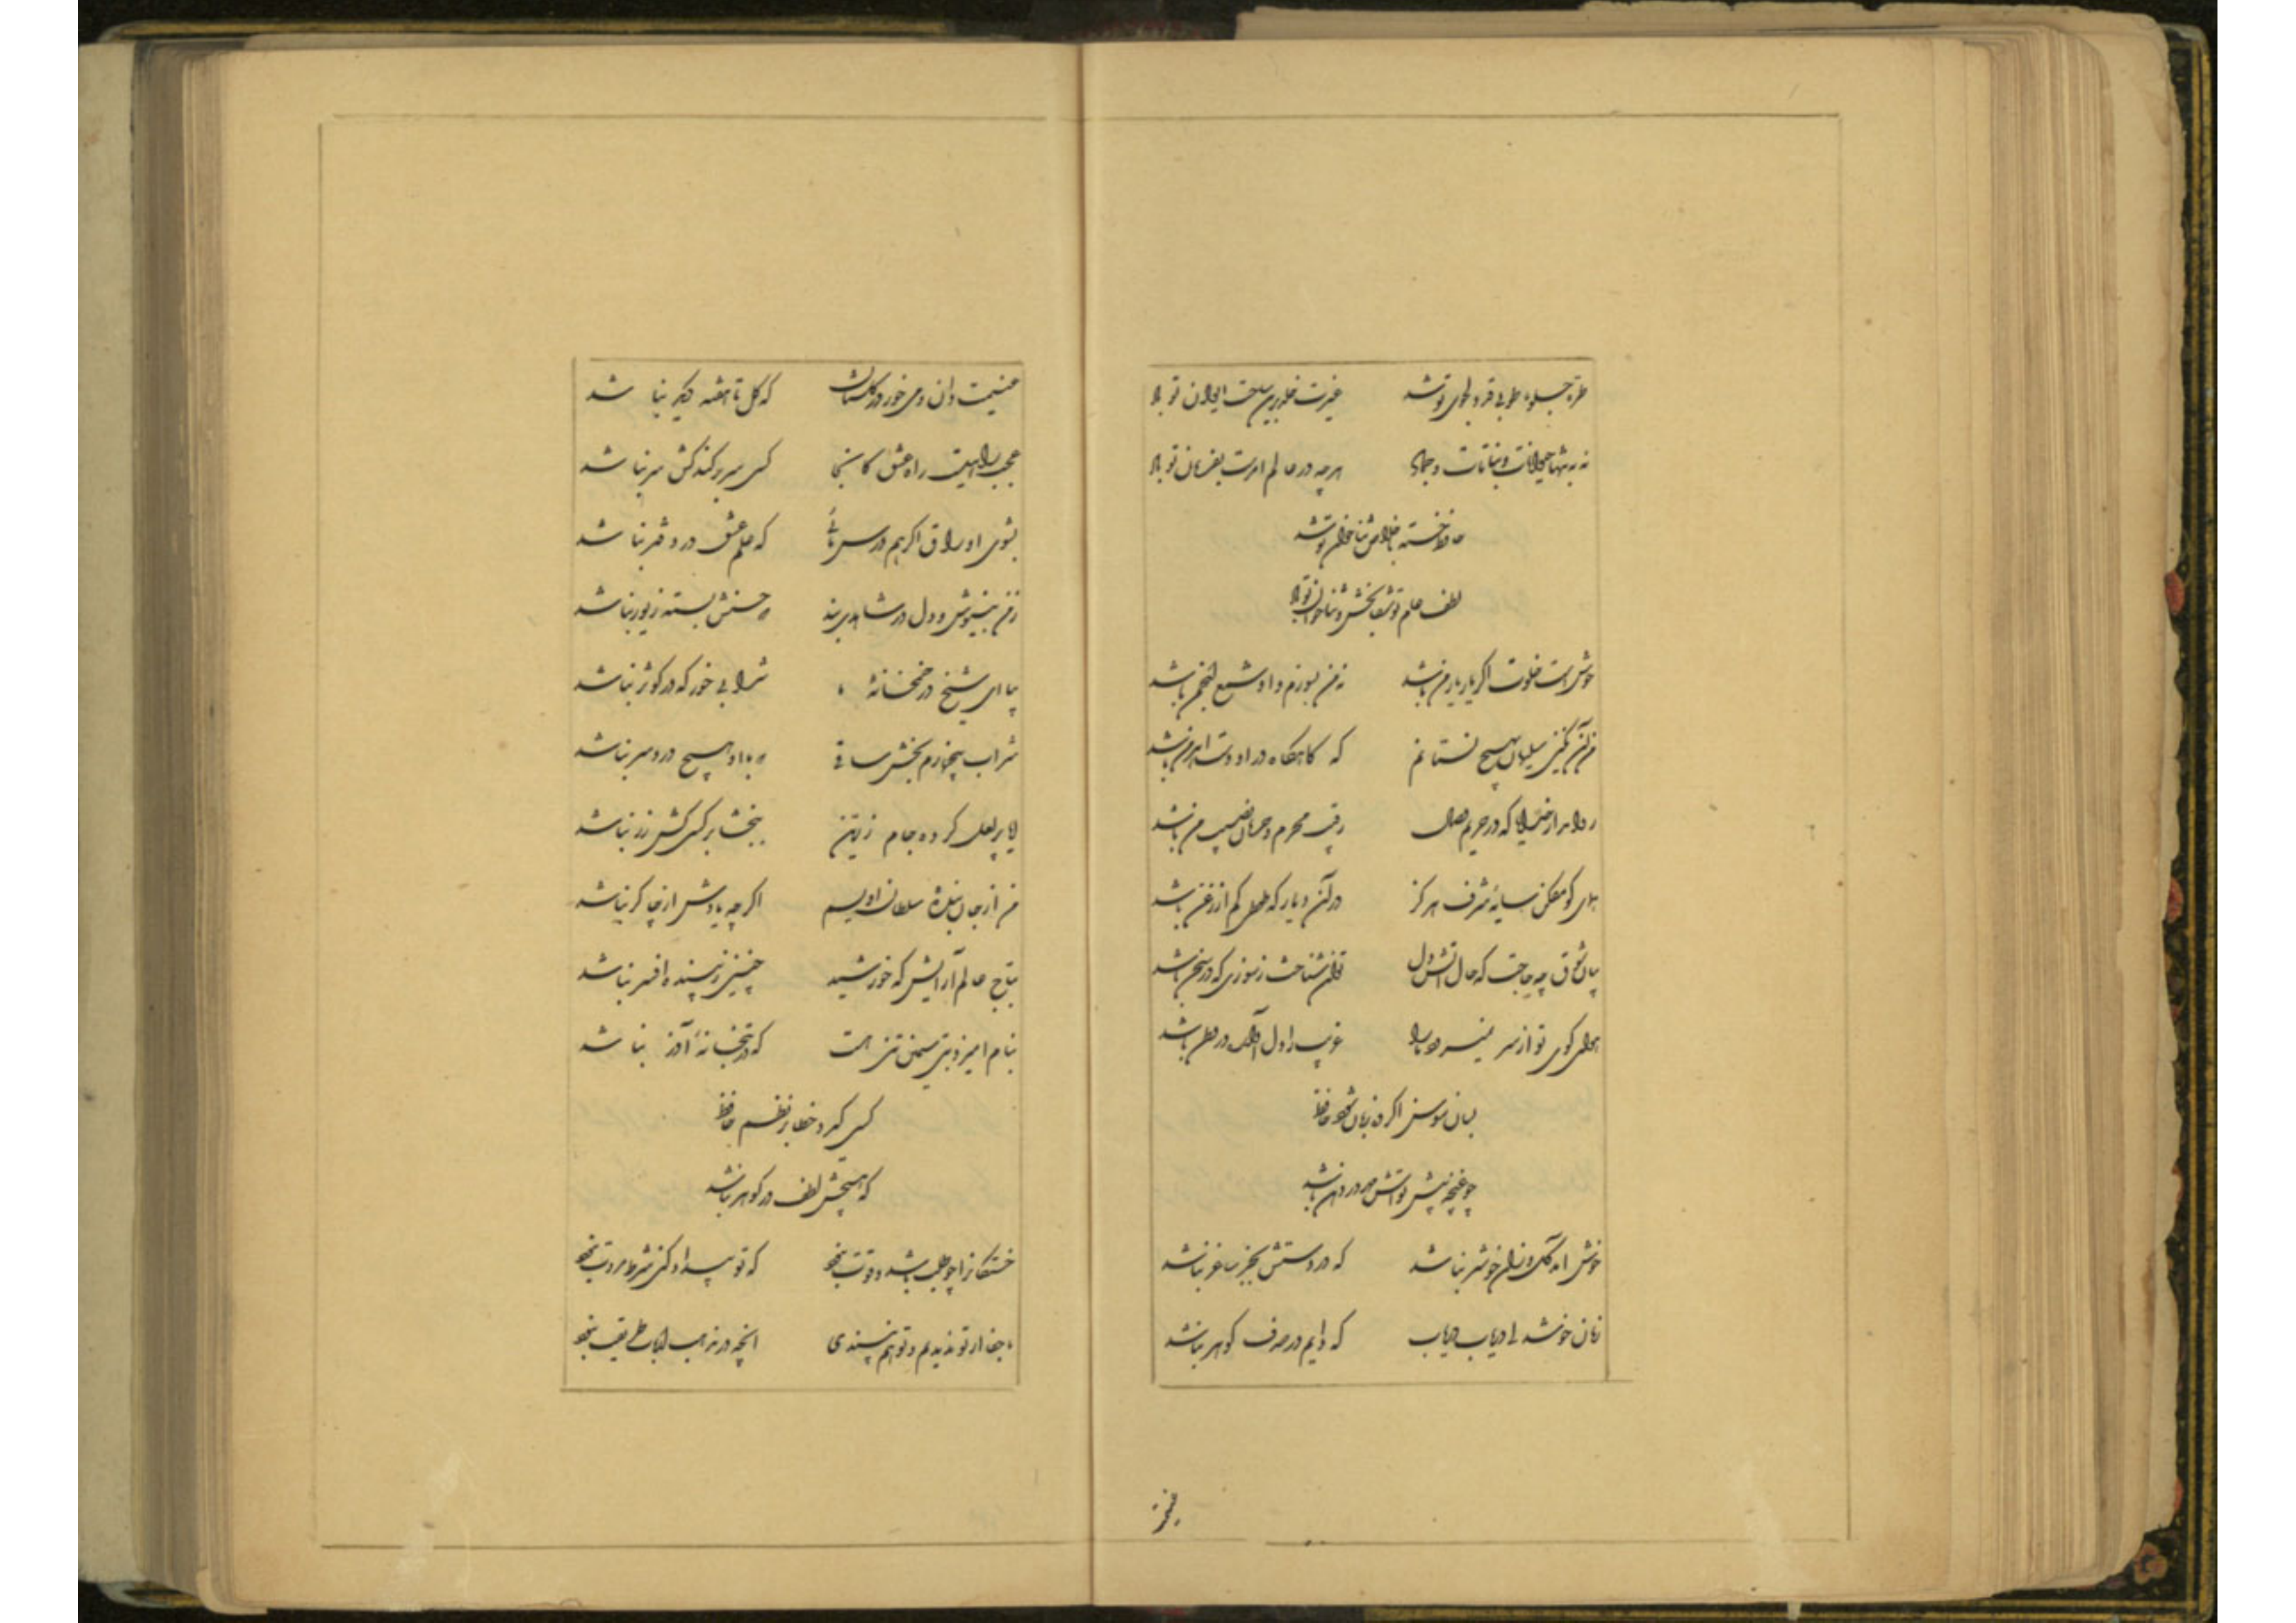 جلوه طوبی قد دلجوی تو شد غیرت خلد برین ساحت ایوان تو باد
نه به تنها حیوانات و نباتات و جماد هرچه در عالم امرست بفرمان تو باد
حافظ خسته باخلاص ثناخوان تو شد
لطف عام تو شفابخش ثناخوان تو باد
خوش است خلوت اگر یار یار من باشد نه من بسوزم و او شمع انجمن باشد
من آن نگین سلیمان بهیچ نستانم که گاهگاه در او دست اهرمن باشد
روا مدار خدایا که در حریم وصال رقیب محرم و حرمان نصیب من باشد
همای کو مفکن سایه شرف هرگز در آن دیار که طوطی کم از زغن باشد
بیان شوق چه حاجت که حال آتش دل توان شناخت ز سوزی که در سخن باشد
هوای کوی تو از سر نمیرود ما را غریب را دل آواره در وطن باشد
بسان سوسن اگر ده زبان شود حافظ
چو غنچه پیش تواش مهر در دهن باشد
خوش آمد گل وزان خوشتر نباشد که در دستت بجز ساغر نباشد
زمان خوشدلی دریاب دریاب که دایم در صدف گوهر نباشد
غنیمت
غنیمت دان و می خور در گلستان که گل تا هفته دیگر نباشد
عجب راهیست راه عشق کانجا کسی سر بر کند کش سر نباشد
بشوی اوراق اگر هم درس مائی که علم عشق در دفتر نباشد
ز من بنیوش و دل در شاهدی بند که حسنش بسته زیور نباشد
بیا ای شیخ در خمخانه ما شرابی خور که در کوثر نباشد
شراب بیخمارم بخش ساقی که با او هیچ درد سر نباشد
ایا پر لعل کرده جام زرین ببخشا بر کسی کش زر نباشد
من از جان بنده سلطان اویسم اگرچه یادش از چاکر نباشد
بتاج عالم آرایش که خورشید چنین زیبنده افسر نباشد
بنام ایزد بتی سیمین تنم هست که در بتخانه آذر نباشد
کسی گیرد خطا بر نظم حافظ
که هیچش لطف در گوهر نباشد
خستگانرا چو طلب باشد و قوت نبود گر تو بیداد کنی شرط مروت نبود
ما جفا از تو ندیدیم و تو هم نپسندی آنچه در مذهب ارباب طریقت نبود